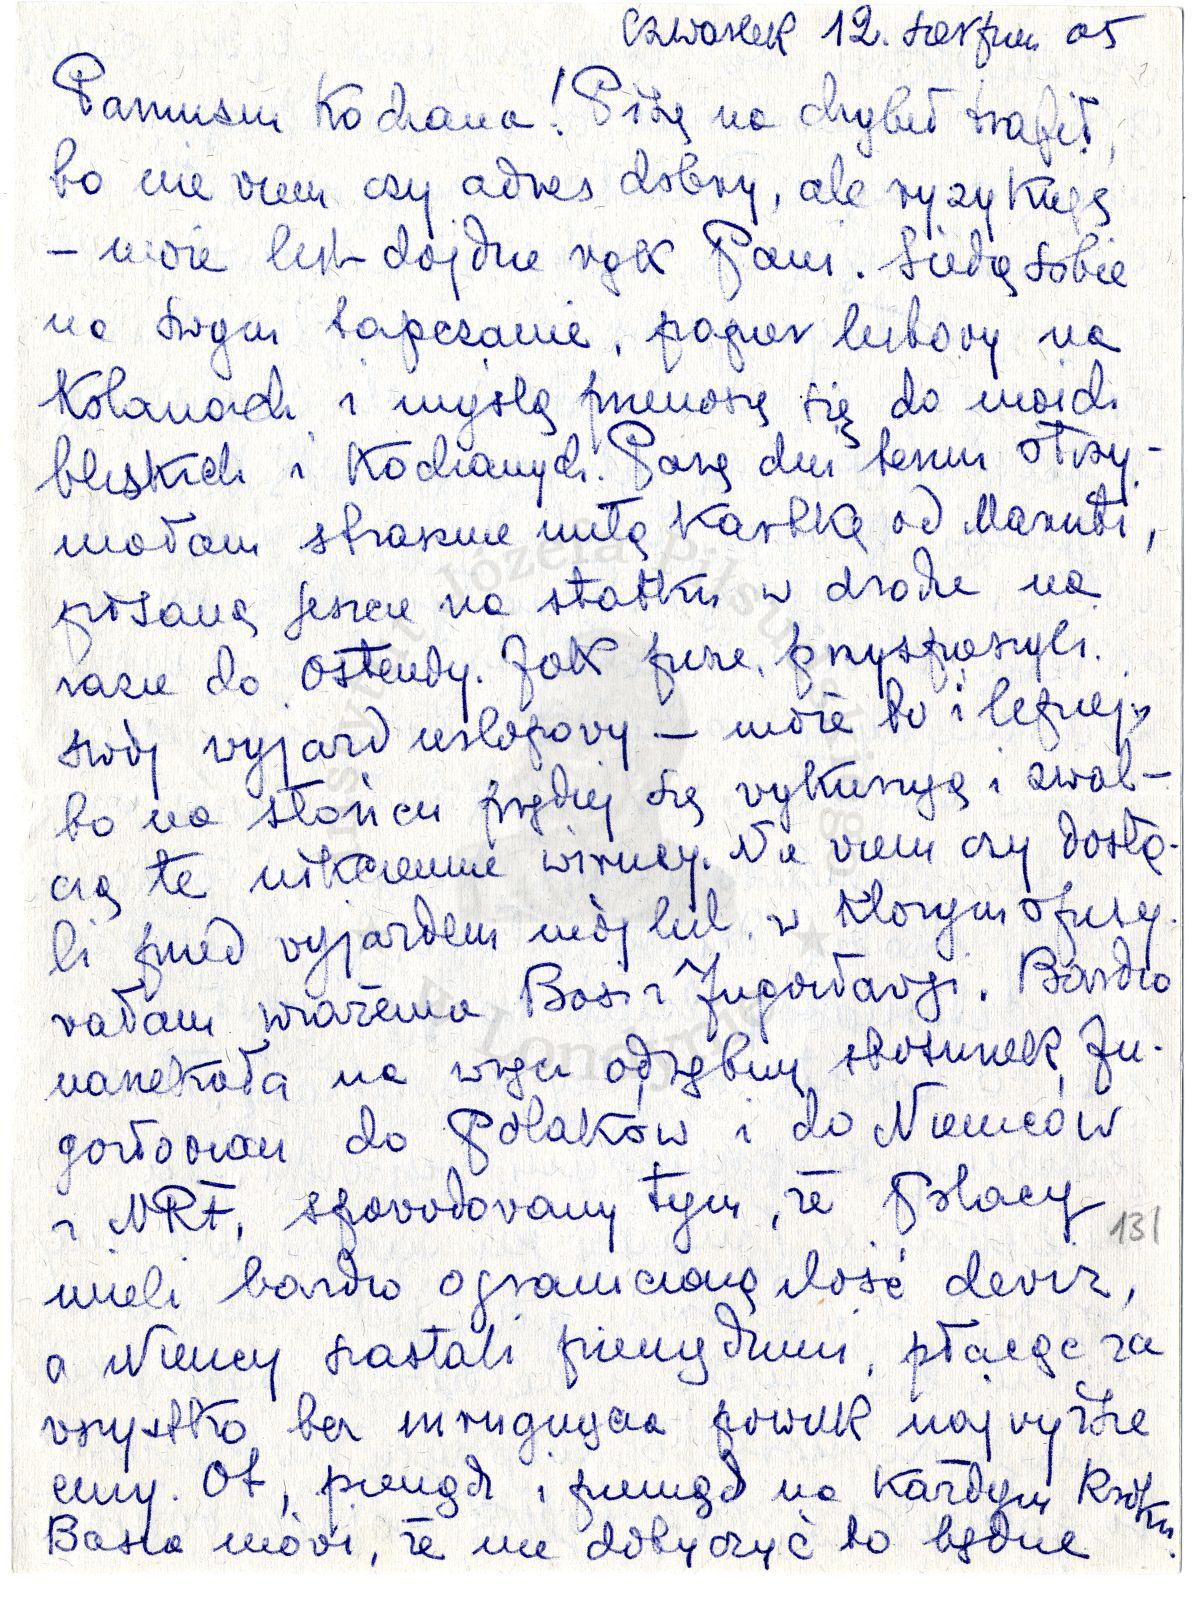 czwartek 12. sierpień 65
Paniusiu Kochana! Piszę na chybił trafił,
bo nie wiem czy adres dobry, ale ryzykuję
– może list dojdzie rąk Pani. Siedzę sobie
na swym tapczanie, papier listowy na
kolanach i myślą przenoszę się do moich
bliskich i kochanych. Parę dni temu otrzy-
małam strasznie miłą kartkę od
pisaną jeszcze na statku w drodze na
razie do Ostendy. Jak pisze, przyspieszyli
swój wyjazd urlopowy – może to i lepiej,
bo na słońcu prędzej się wykurzą i zwal-
czą te nikczemne wirusy. Nie wiem czy dosta-
li przed wyjazdem mój list w którym opisy-
wałam wrażenia Basi z Jugosławji. Bardzo
narzekała na wręcz odrębny stosunek Ju-
gosłowian do Polaków i do Niemców
z NRF, spowodowany tym, że Polacy
mieli bardzo ograniczoną ilość dewiz,
a Niemcy szastali pieniędzmi, płacąc za
wszystko bez mrugnięcia powiek najwyższe
ceny. Ot, pieniądz i pieniądz na każdym kroku.
Basia mówi, że nie dobyczyć to będzie
131
Instytut Józefa Piłsudskiego
w Londynie